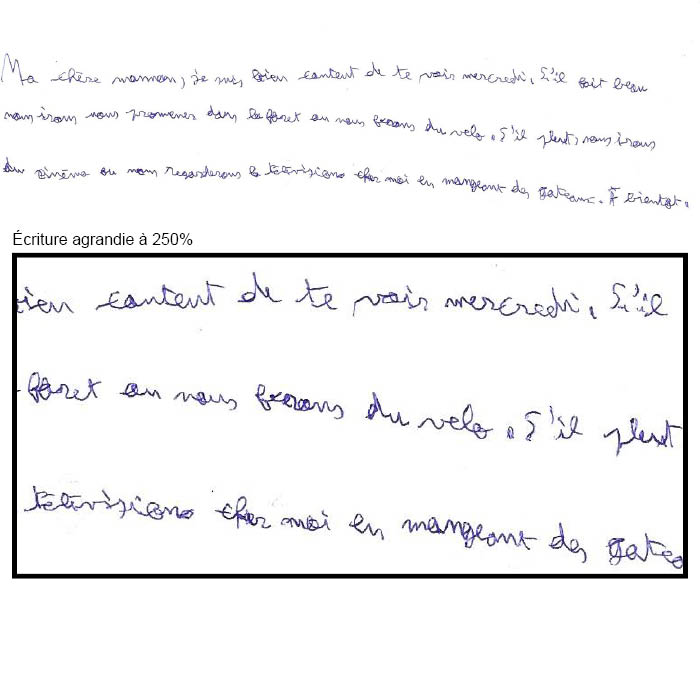 Ma chère maman, je suis bien content de te voir mercredi. S'il fait beau
nous irons nous promener dans la foret ou nous ferons du velo. S'il pleut, nous irons
du cinéma ou nous regarderons la télévisions chez moi en mangeant des gateaux. A bientot.
Écriture agrandie à 250%
ien content de te voir mercredi. S'il
foret ou nous ferons du velo. S'il pleut
télévisions chez moi en mangeant des gatea